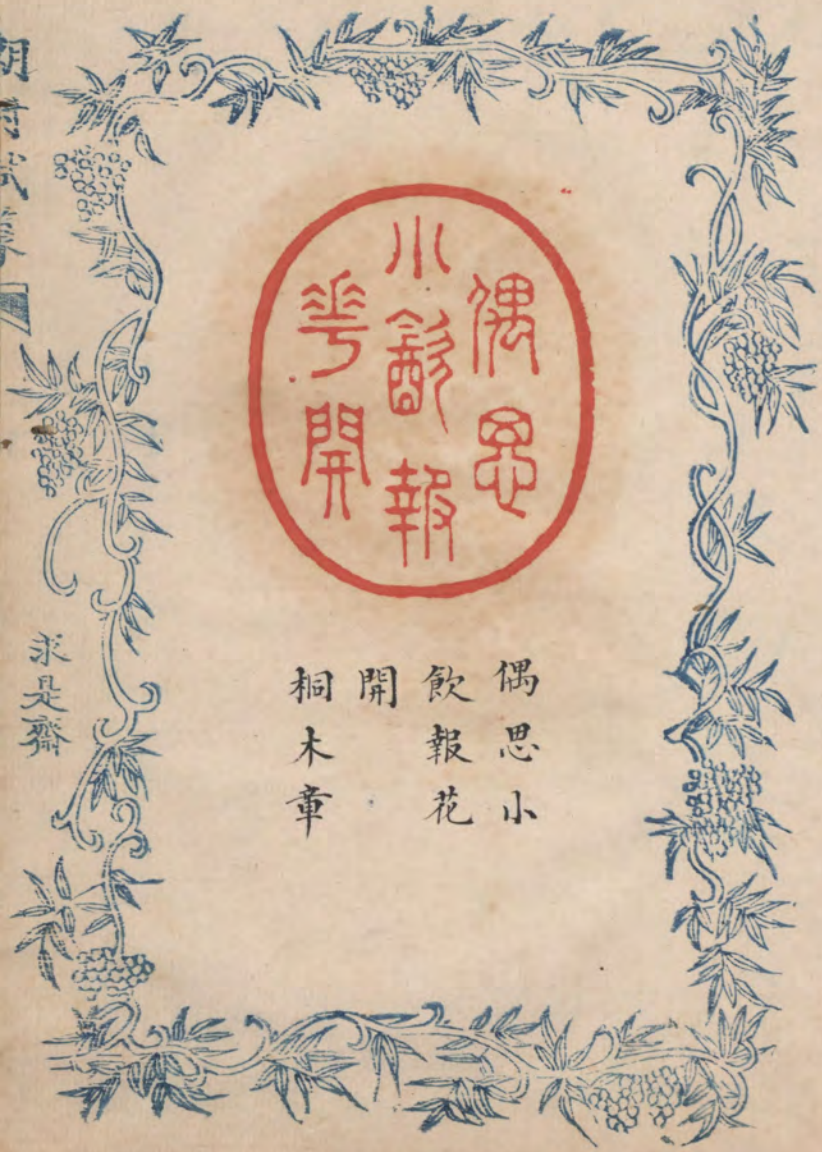 偶思
小飲報
華開
偶思小
飲報花
開
桐木章
求是齋